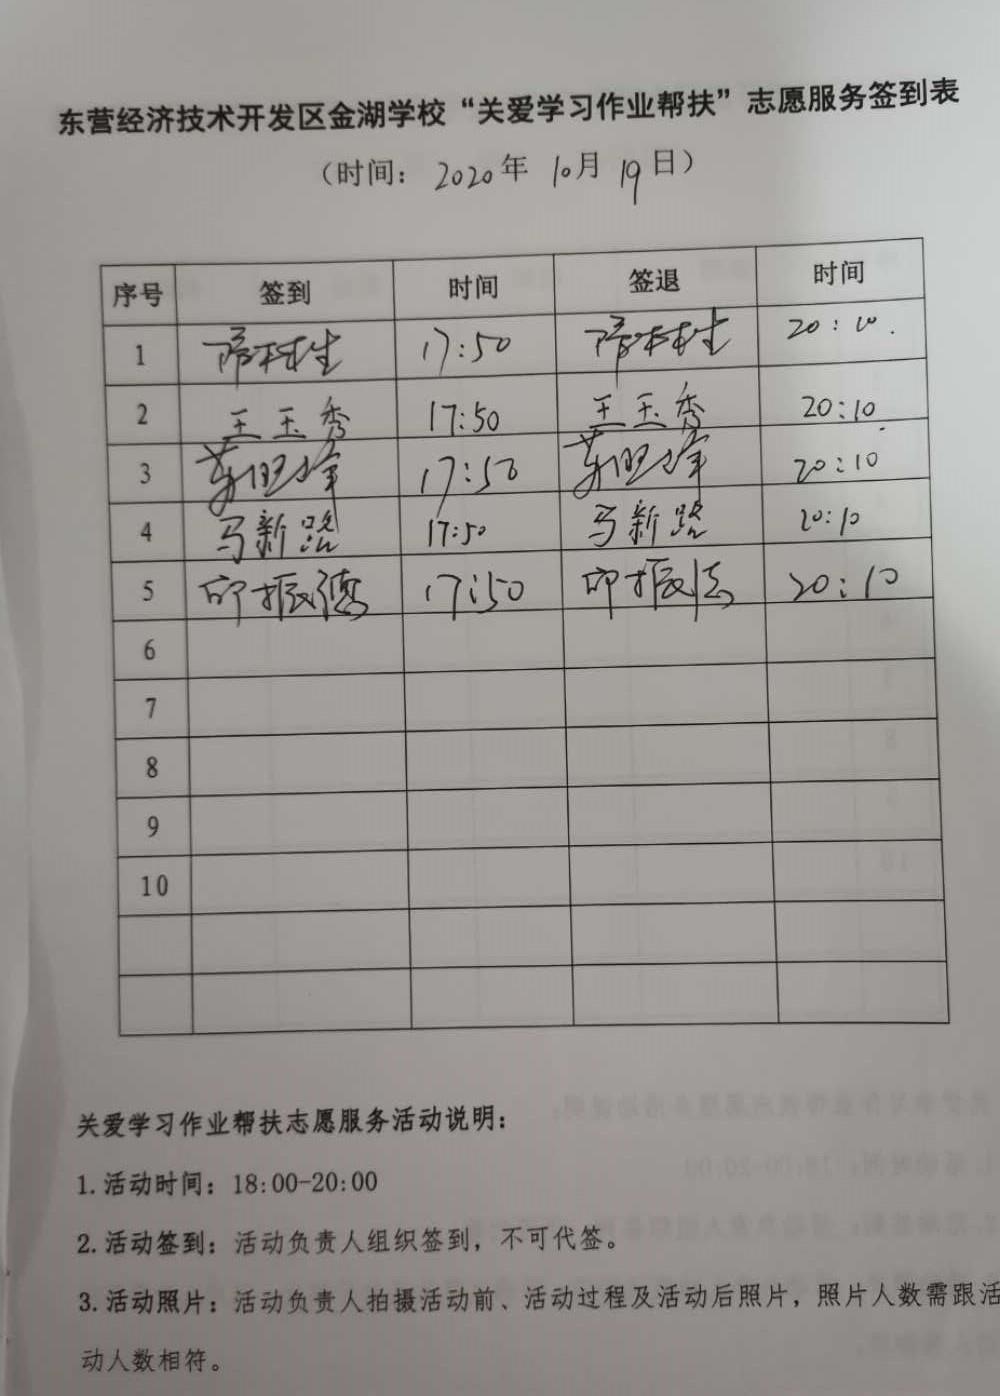 东营经济技术开发区金湖学校“关爱学习作业帮扶”志愿服务签到表
（时间：2020年 10月 19日）
序号 签到 时间 签退 时间
1 17:50 20:10.
2 王玉秀 17:50 王玉秀 20:10
3 17:50 20:10
4 马新路 17:50 马新路 20:10
5 邱振德 17:50 邱振法 20:10
6
7
8
9
10
关爱学习作业帮扶志愿服务活动说明：
1.活动时间：18:00-20:00
2.活动签到：活动负责人组织签到，不可代签。
3.活动照片：活动负责人拍摄活动前、活动过程及活动后照片，照片人数需跟活
动人数相符。